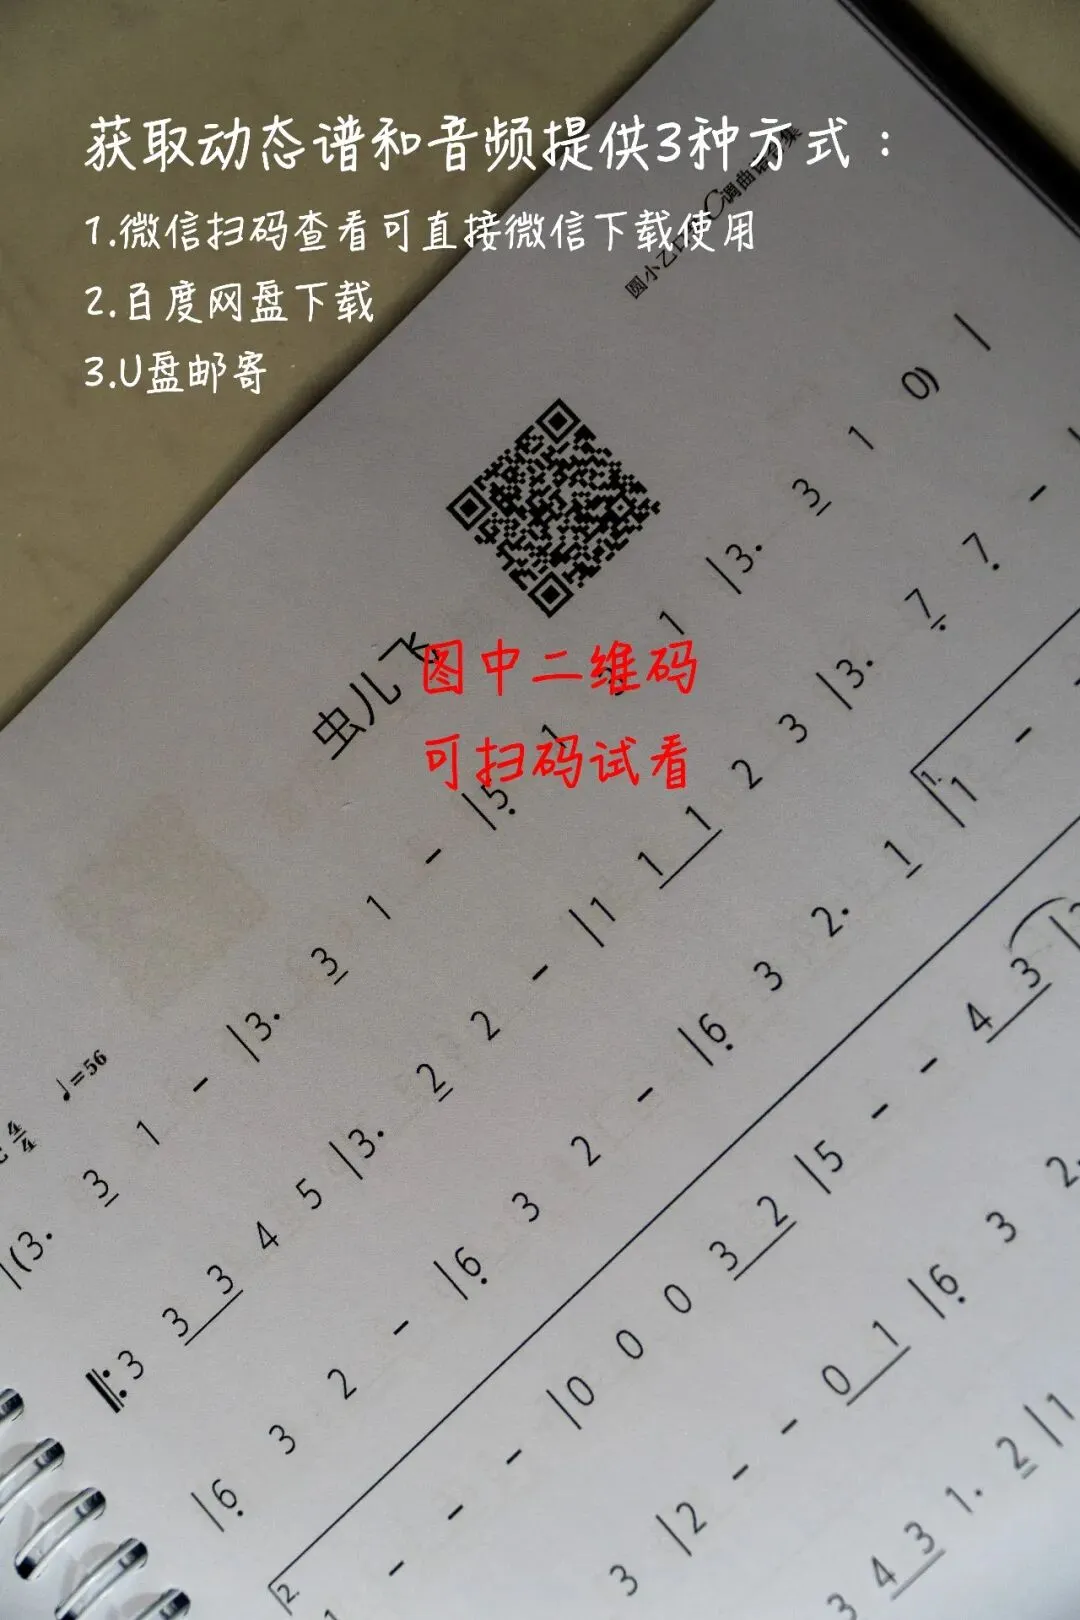 获取动态谱和音频提供3种方式：
1.微信扫码查看可直接微信下载使用
2.百度网盘下载
3.U盘邮寄
图中二维码
可扫码试看
圆小乙口
C调曲谱
集
虫儿飞
♩=56
4/4
|(3. 3 1 - |3. 3 1 - |5̣ 1 3 1 |3. 3 1 0) |
‖: 3 3 3 4 5 |3. 2 2 - |1 1 1 2 3 |3. 7̣ 7̣ -
|6̣ 3 2 - |6̣ 3 2 - |6̣ 3 2. 1 |1. |1 -
2. 1 - - - |0 0 0 3 2 |5 - - 4 3
3 |2 - - 0 1 |6̣ 3 2.
3 4 3 1. 2 |1